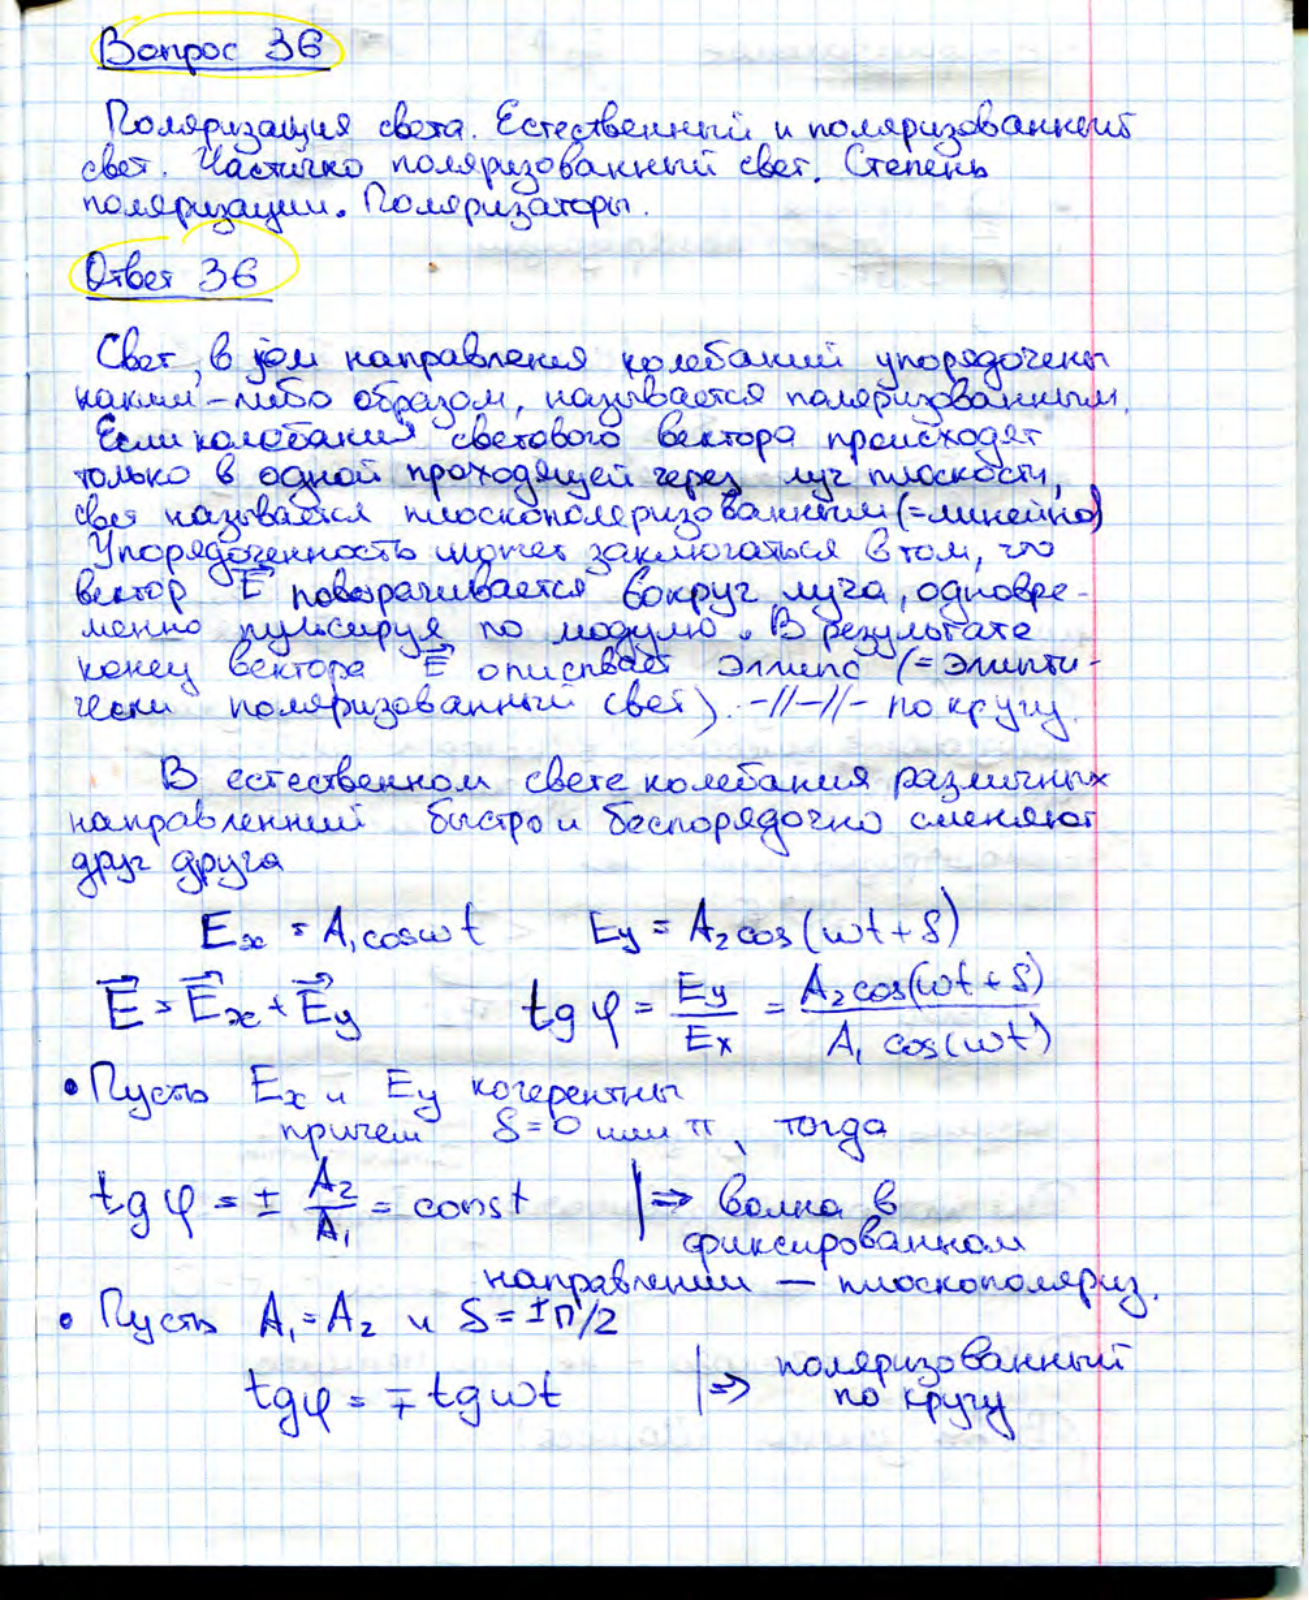 Вопрос 36
Поляризация света. Естественный и поляризованный
свет. Частично поляризованный свет. Степень
поляризации. Поляризаторы.
Ответ 36
Свет, в ком направления колебаний упорядочены
каким-либо образом, называется поляризованным.
Если колебания светового вектора происходят
только в одной проходящей через луч плоскости,
свет называется плоскополяризованным (=линейно)
Упорядоченность может заключаться в том, что
вектор E⃗ поворачивается вокруг луча, одновре-
менно пульсируя по модулю. В результате
конец вектора E⃗ описывает эллипс (=элипти-
чески поляризованный свет). -//-//- по кругу.
В естественном свете колебания различных
направлений быстро и беспорядочно сменяют
друг друга
Eₓ = A₁cosωt Ey = A₂cos(ωt+δ)
E⃗ = E⃗ₓ + E⃗y tg φ = Ey/Ex = A₂cos(ωt+δ)/A₁ cos(ωt)
• Пусть Eₓ и Ey когерентны
причем δ=0 или π, тогда
tg φ = ± A₂/A₁ = const |⇒ волна в
фиксированном
направлении — плоскополяриз.
• Пусть A₁=A₂ и δ=±π/2
tgφ = ∓ tgωt |⇒ поляризованный
по кругу